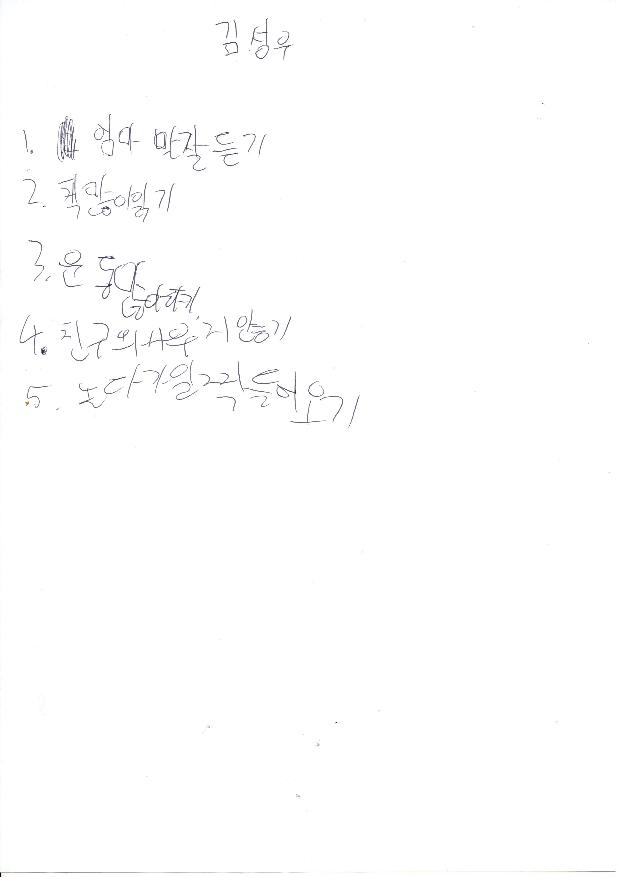 김성우
1. 엄마 말잘듣기
2. 책많이읽기
3. 운동많이하기
4. 친구와싸우지않기
5. 논다가일찍들어오기